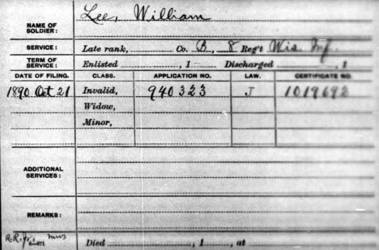 NAME OF SOLDIER: Lee, William
SERVICE: Late rank, Co. B, 8 Reg't Wis. Inf.
TERM OF SERVICE: Enlisted , 1 Discharged , 1
DATE OF FILING. CLASS. APPLICATION NO. LAW. CERTIFICATE NO.
1890 Oct 21 Invalid, 940323 J 1019692
Widow,
Minor,
ADDITIONAL SERVICES:
REMARKS:
Died , 1 , at